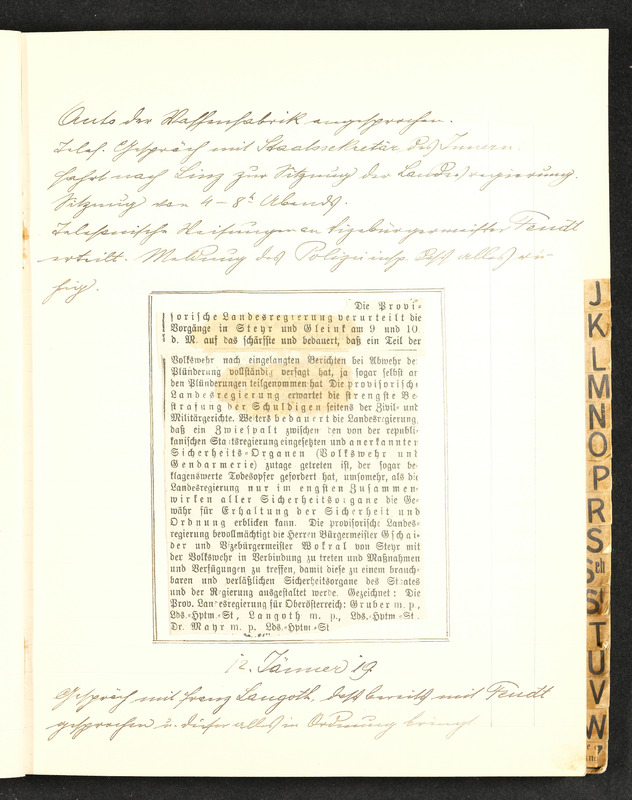 Auto der Waffenfabrik angesprochen.
Telef. Gespräch mit Staatssekretär des Innern.
Fahrt nach Linz zur Sitzung der Landesregierung.
Sitzung von 4 – 8h Abends.
Telefonische Weisungen an Vizebürgermeister Fendt
erteilt. Meldung des Polizeiinsp. daß alles ru-
hig.
Die Provi-
sorische Landesregierung verurteilt die
Vorgänge in Steyr und Gleink am 9 und 10.
d. M. auf das schärfste und bedauert, daß ein Teil der
Volkswehr nach eingelangten Berichten bei Abwehr de
Plünderung vollständig versagt hat, ja sogar selbst an
den Plünderungen teilgenommen hat Die provisorische
Landesregierung erwartet die strengste Be-
strafung der Schuldigen seitens der Zivil- und
Militärgerichte. Weiters bedauert die Landesregierung,
daß ein Zwiespalt zwischen den von der republi-
kanischen Staatsregierung eingesetzten und anerkannten
Sicherheits-Organen (Volkswehr und
Gendarmerie) zutage getreten ist, der sogar be-
klagenswerte Todesopfer gefordert hat, umsomehr, als die
Landesregierung nur im engsten Zusammen-
wirken aller Sicherheitsorgane die Ge-
währ für Erhaltung der Sicherheit und
Ordnung erblicken kann. Die provisorische Landes-
regierung bevollmächtigt die Herren Bürgermeister Gschai-
der und Vizebürgermeister Wokral von Steyr mit
der Volkswehr in Verbindung zu treten und Maßnahmen
und Verfügungen zu treffen, damit diese zu einem brauch-
baren und verläßlichen Sicherheitsorgane des Staates
und der Regierung ausgestaltet werde. Gezeichnet: Die
Prov. Landesregierung für Oberösterreich: Gruber m. p.,
Lds.-Hptm.-St., Langoth m. p., Lds.-Hptm.-St.
Dr. Mayr m. p. Lds.-Hptm.-St
12. Jänner 19
Gespräch mit Franz Langoth, daß bereits mit Fendt
gesprochen u. dieser alles in Ordnung bringt
J
K
L
M
N
O
P
R
S
Sch
St
T
U
V
W